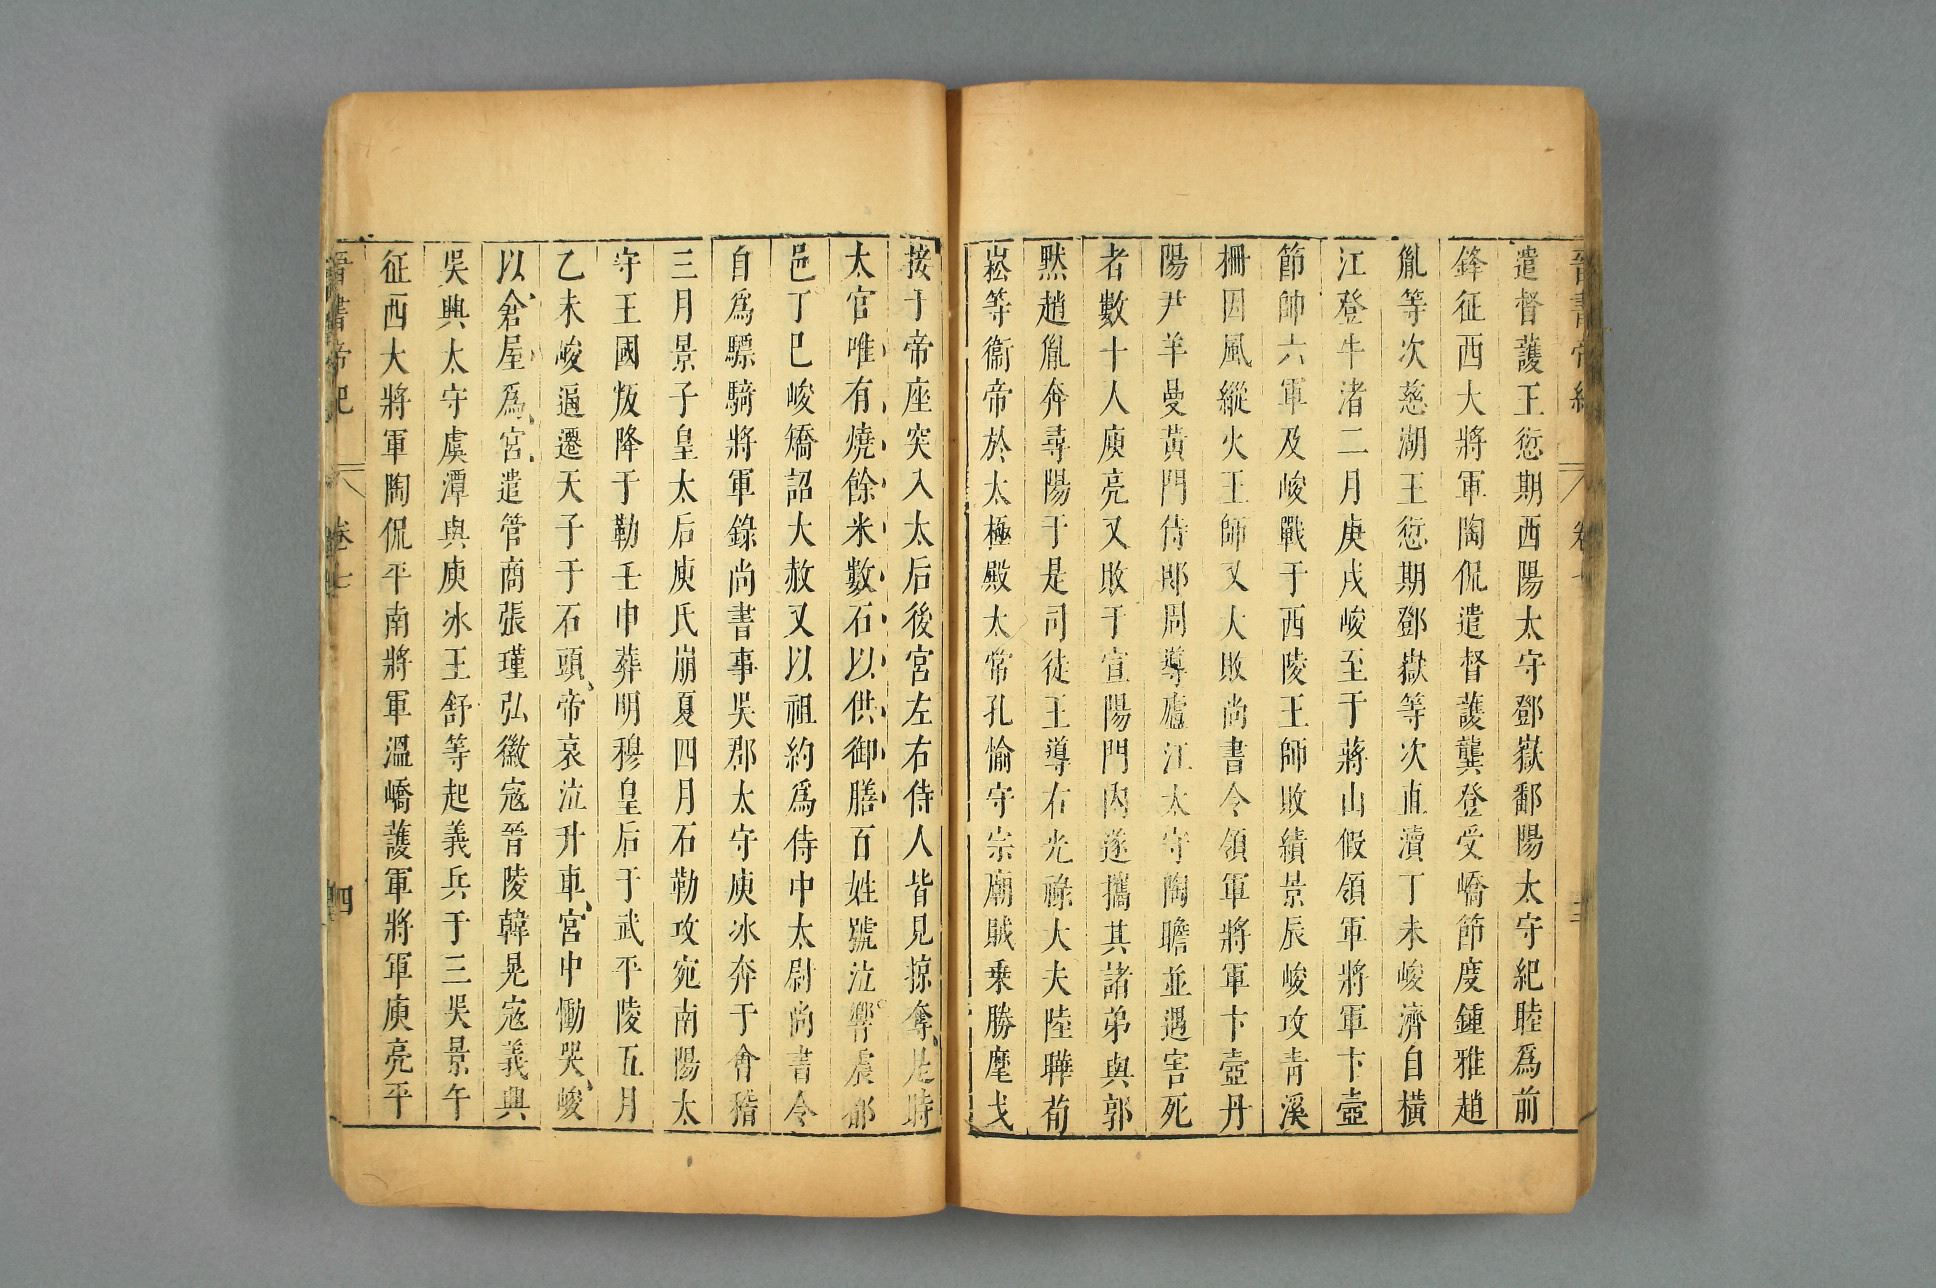 晉書帝紀 卷七 三
遣督護王愆期西陽太守鄧嶽鄱陽太守紀睦爲前
鋒征西大將軍陶侃遣督護龔登受嶠節度鍾雅趙
胤等次慈湖王愆期鄧嶽等次直瀆丁未峻濟自橫
江登牛渚二月庚戌峻至于蔣山假領軍將軍卞壼
節帥六軍及峻戰于西陵王師敗績景辰峻攻青溪
柵因風縱火王師又大敗尚書令領軍將軍卞壼丹
陽尹羊曼黃門侍郎周導廬江太守陶瞻並遇害死
者數十人庾亮又敗于宣陽門內遂攜其諸弟與郭
默趙胤奔尋陽于是司徒王導右光祿大夫陸曄荀
崧等衞帝於太極殿太常孔愉守宗廟賊乗勝麾戈
接于帝座突入太后後宮左右侍人皆見掠奪是時
太官唯有燒餘米數石以供御膳百姓號泣響震都
邑丁巳峻矯詔大赦又以祖約爲侍中太尉尚書令
自爲驃騎將軍錄尚書事吳郡太守庾冰奔于會稽
三月景子皇太后庾氏崩夏四月石勒攻宛南陽太
守王國叛降于勒壬申葬明穆皇后于武平陵五月
乙未峻逼遷天子于石頭帝哀泣升車宮中慟哭峻
以倉屋爲宮遣管商張瑾弘徽寇晉陵韓晃寇義興
吳興太守虞潭與庾冰王舒等起義兵于三吳景午
征西大將軍陶侃平南將軍溫嶠護軍將軍庾亮平
晉書帝紀 卷七 四